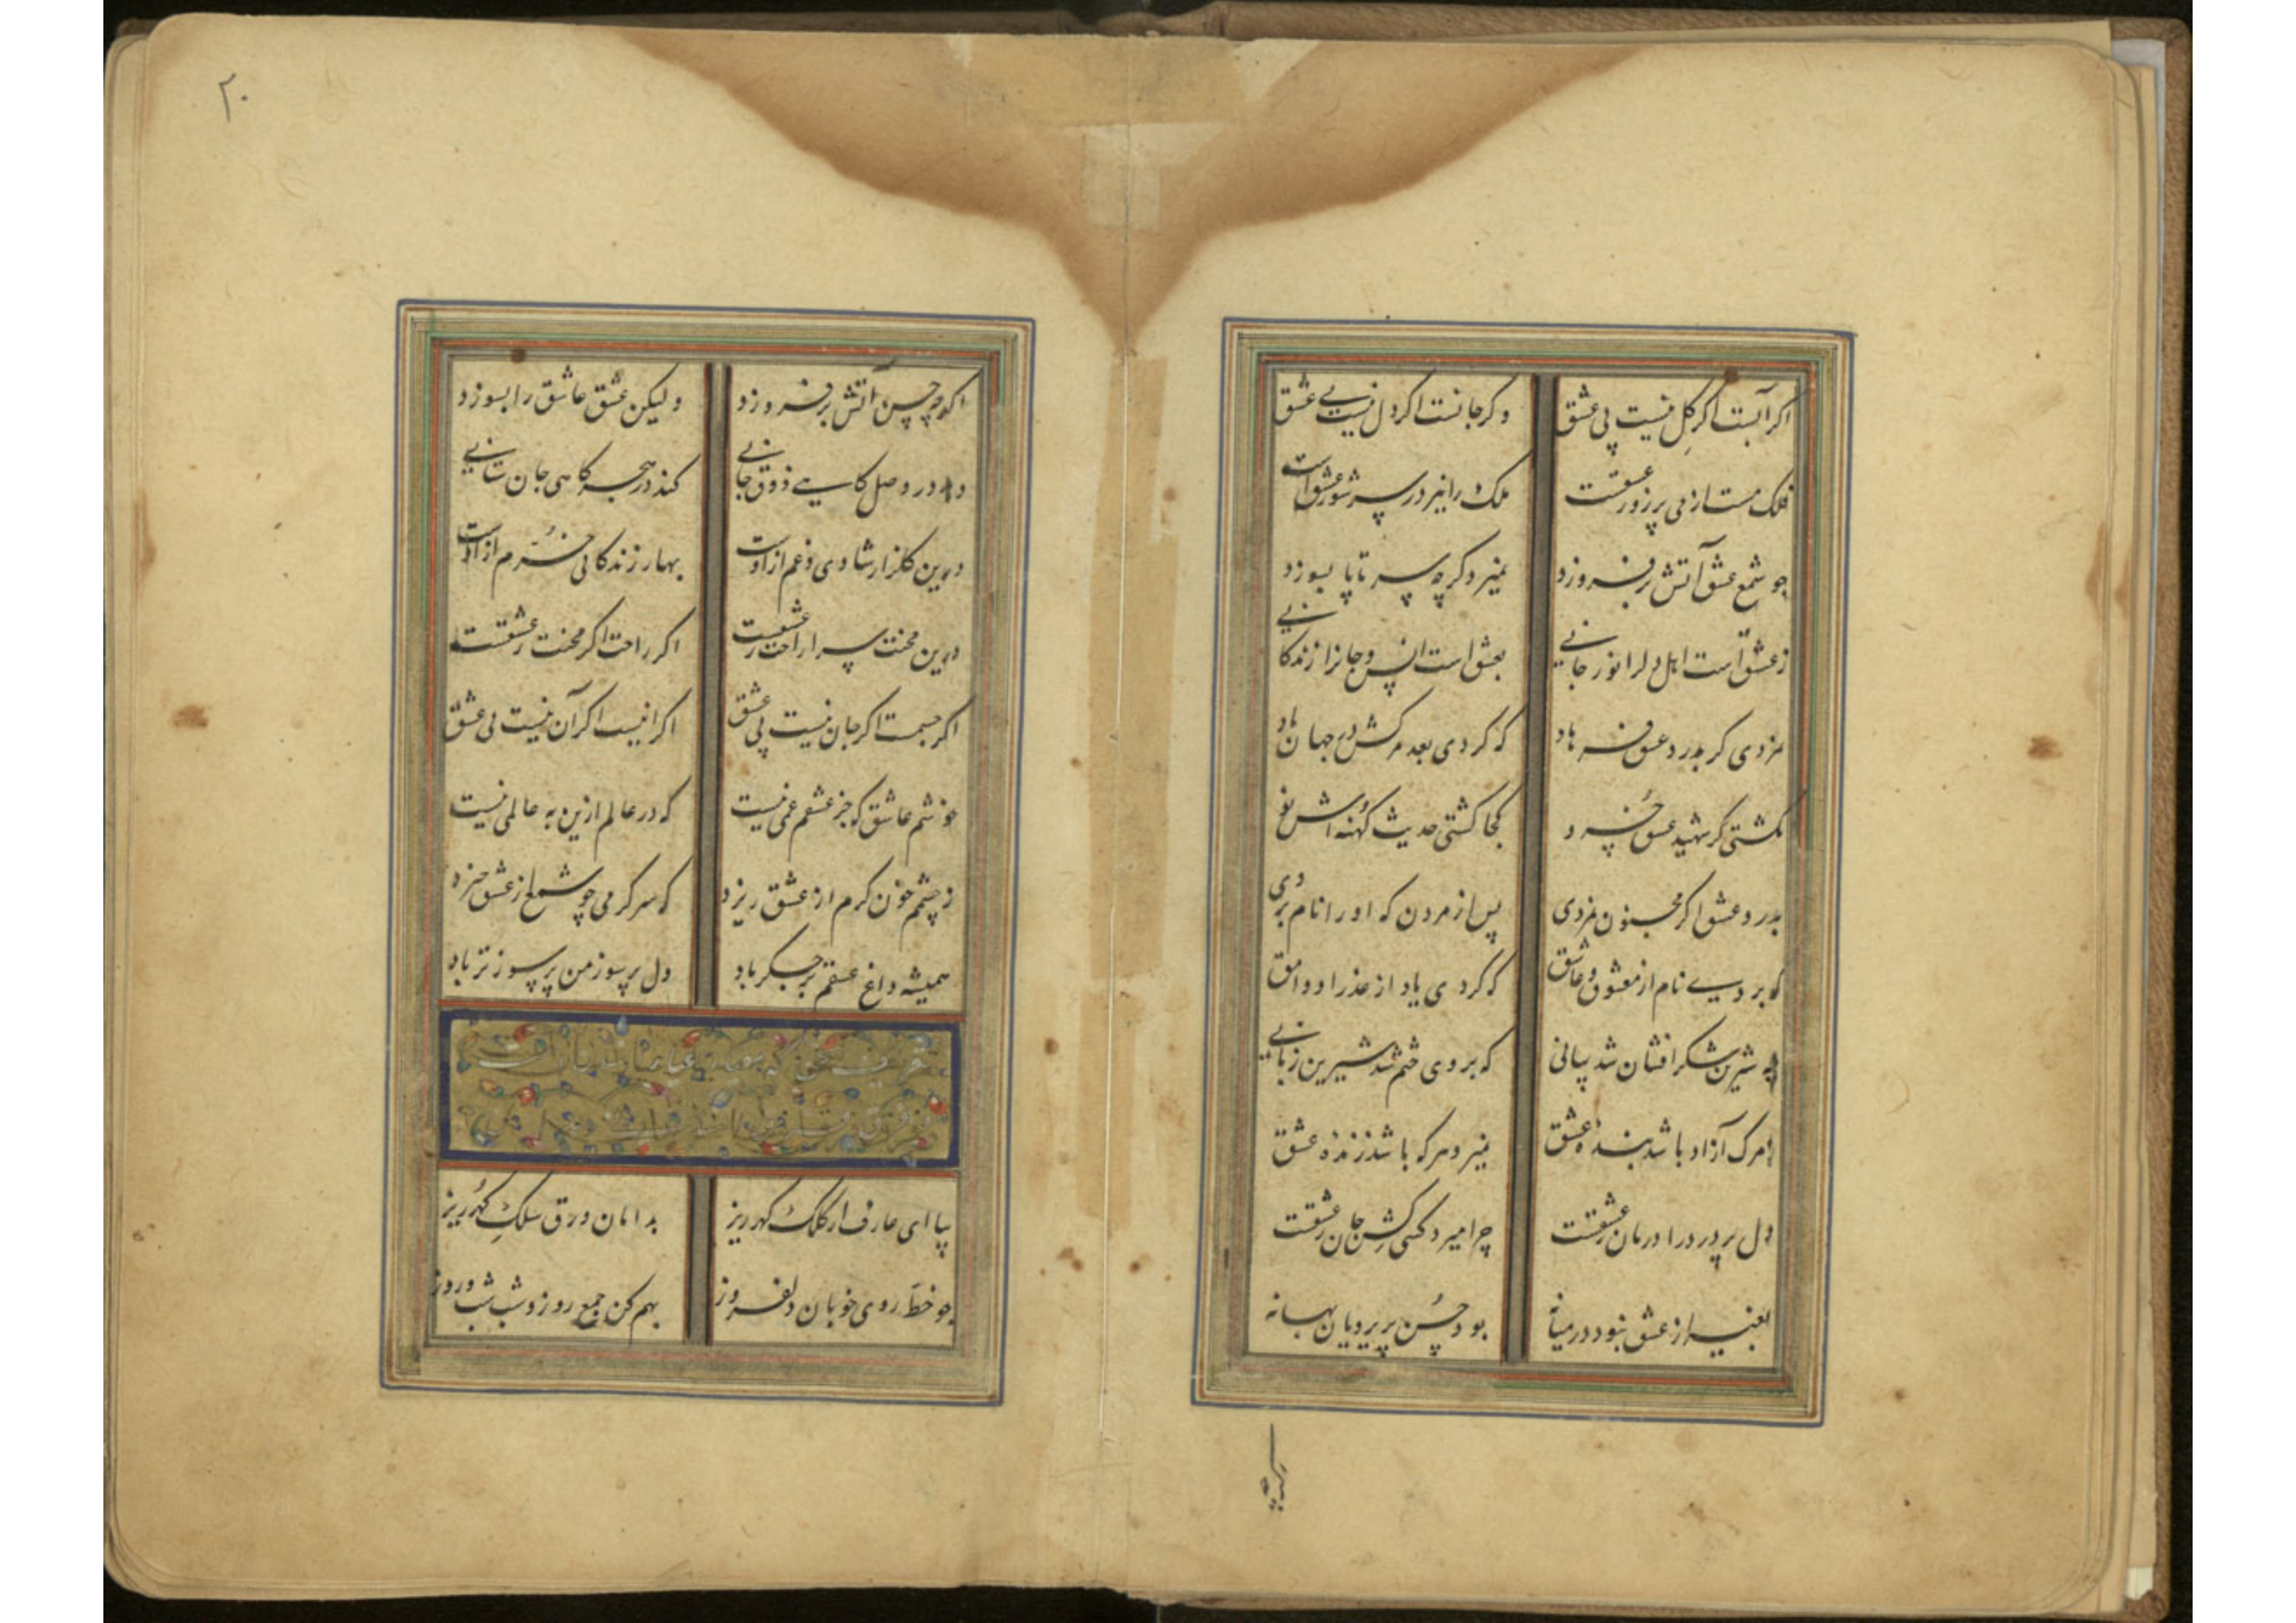 اکر آبست اکر کل نیست بی عشق
وکر جانست اکر دل نیست بی عشق
فلک مست از می پر زور عشقست
ملک را نیز در سر شور عشق است
چو شمع عشق آتش بر فروزد
نمیرد کرچه سر تا پا بسوزد
ز عشق است اهل دل را نور جانی
بعشق است انس و جانرا زندکانی
نمردی کر بدرد عشق فرهاد
که کردی بعد مرکش در جهان یاد
نکشتی کر شهید عشق خسرو
کجا کشتی حدیث کهنه اش نو
بدرد عشق اکر مجنون نمردی
پس از مردن که او را نام بردی
که بردی نام از معشوق و عاشق
که کردی یاد از عذرا و وامق
چه شیرین شکرافشان شد بیانی
که بر وی ختم شد شیرین زبانی
ز مرک آزاد باشد بنده عشق
نمیرد هرکه باشد زنده عشق
دل پر درد را درمان ز عشقست
چرا میرد کسی کش جان ز عشقست
بغیر از عشق نبود در میانه
بود حسن پری رویان بهانه
اکرچه
۲۰
اکرچه حسن آتش بر فروزد
ولیکن عشق عاشق را بسوزد
دهد در وصل کاهی ذوق جانی
کند در هجر کاهی جان ستانی
درین کلزار شادی و غم از اوست
بهار زندکانی خرم از اوست
درین محنت سرا راحت ز عشقست
اکر راحت اکر محنت ز عشقست
اکر جسمست اکر جان نیست بی عشق
اکر اینست اکر آن نیست بی عشق
خوشم عاشق که جز عشقم غمی نیست
که در عالم ازین به عالمی نیست
ز چشمم خون کرم از عشق ریزد
که سرکرمی چو شمع از عشق خیزد
همیشه داغ عشقم بر جکر باد
دل پر سوز من پر سوزتر باد
بیا ای عارف از کلک کهرریز
بدامان ورق سلک کهر ریز
چو خط روی خوبان دلفروز
بهم کن جمع روز و شب شب و روز